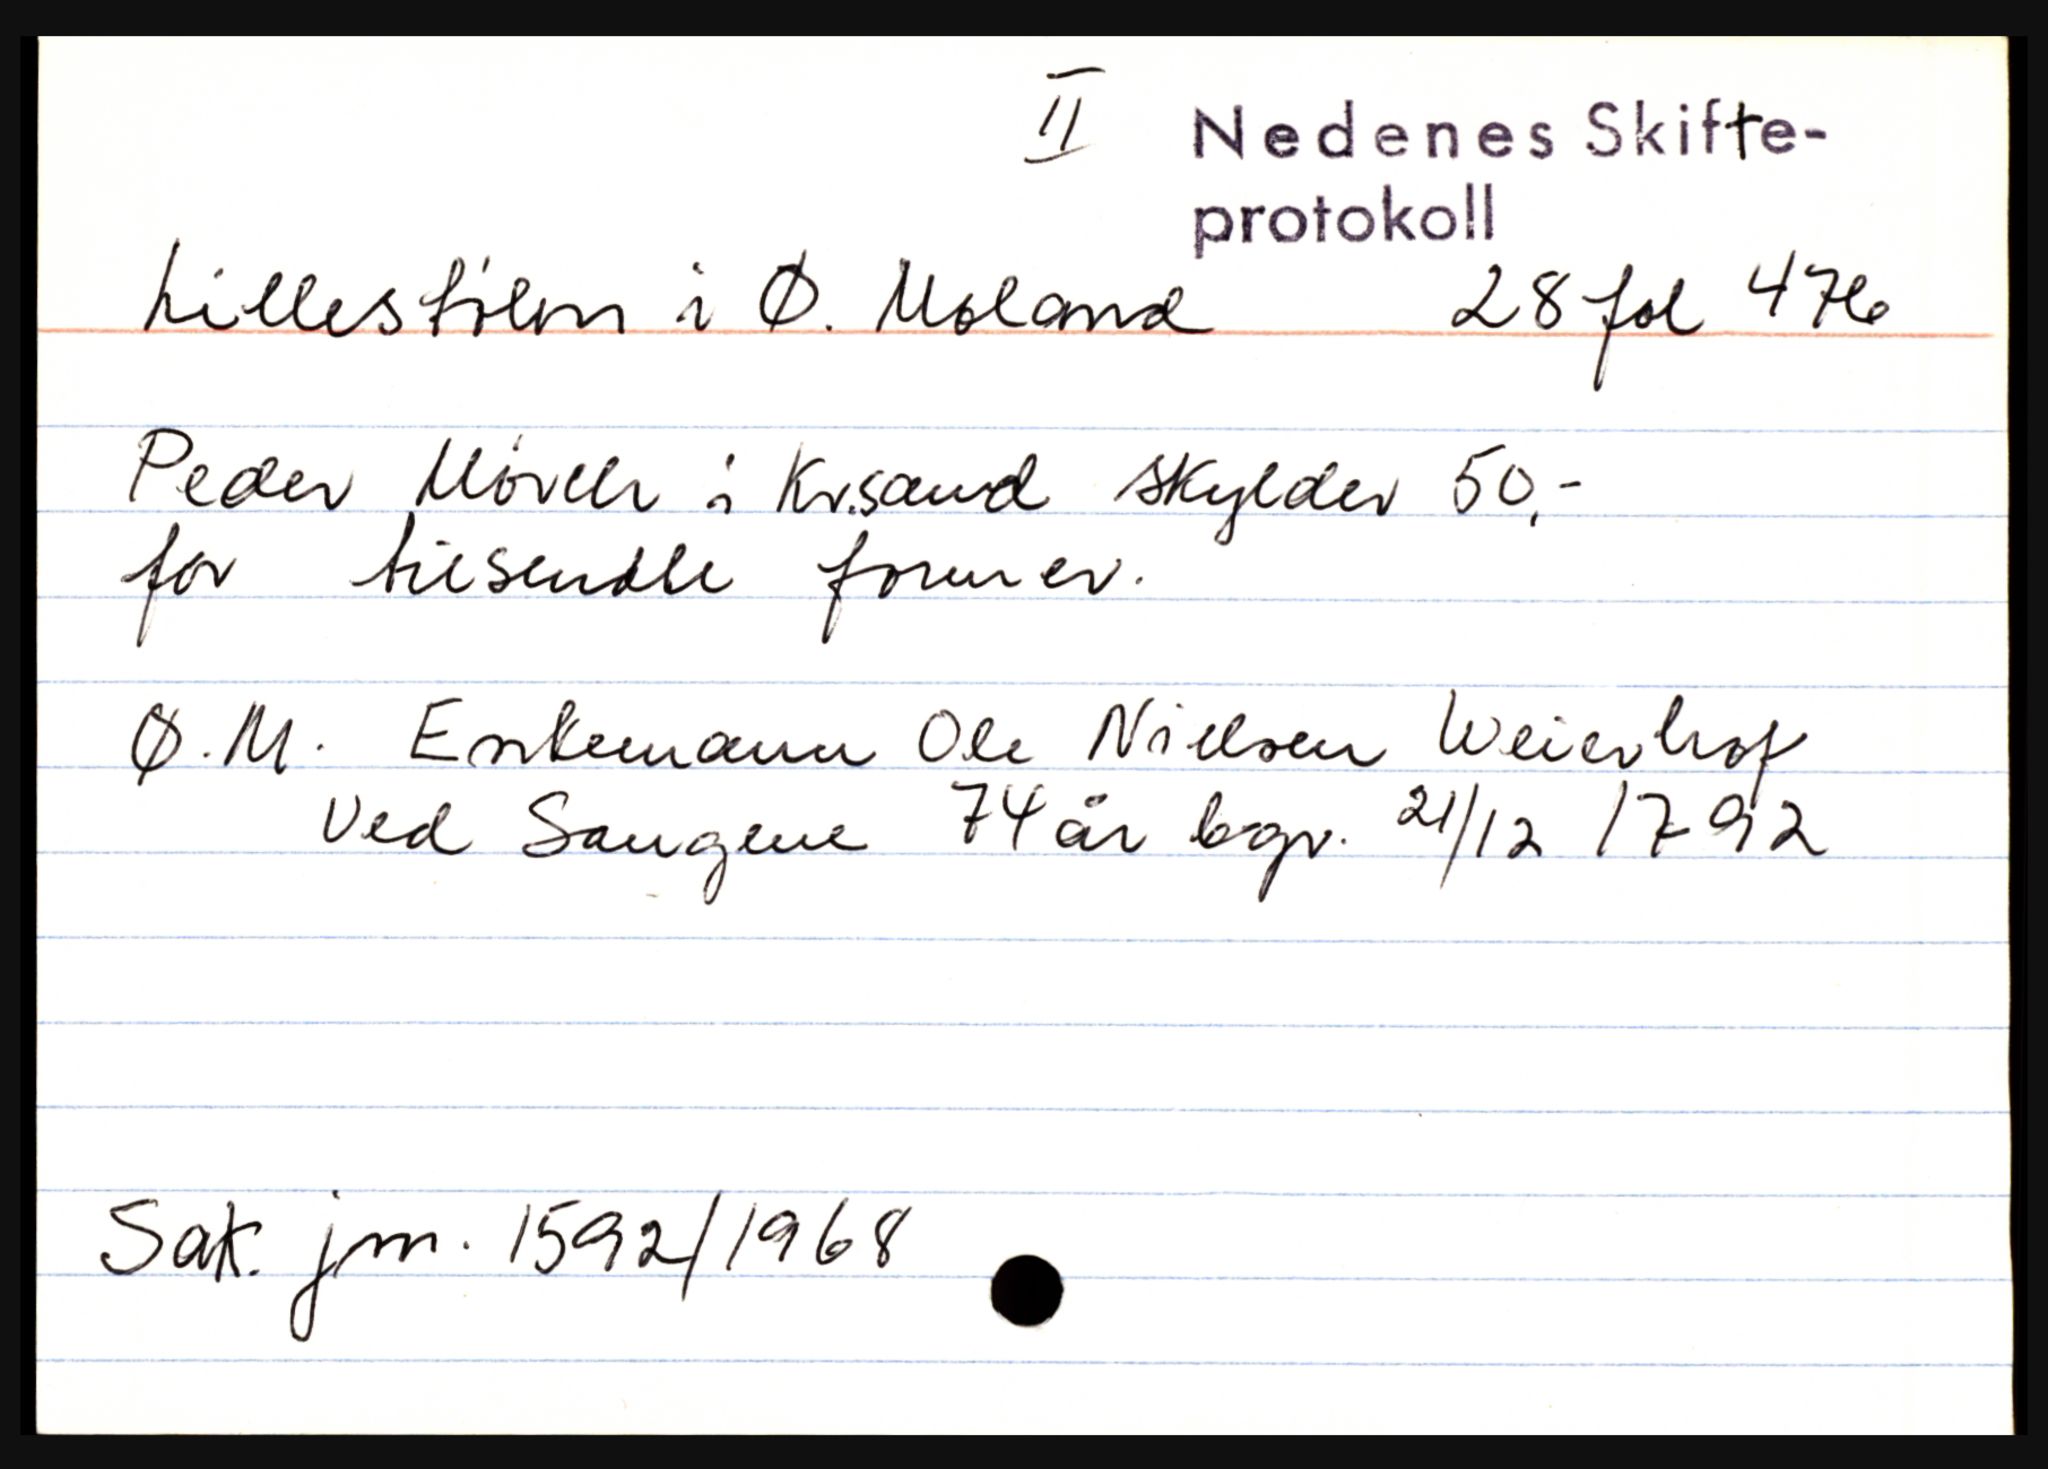 II
Nedenes Skifte-
protokoll
Lillestølen i Ø. Moland 28 fol 476
Peder Mørch i Kr.sand skylder 50,-
for tilsendte former.
Ø.M. Enkemann Ole Nielsen Weierhof
Ved Saugene 74 år bgr. 21/12 1792
Sak. jm. 1592/1968